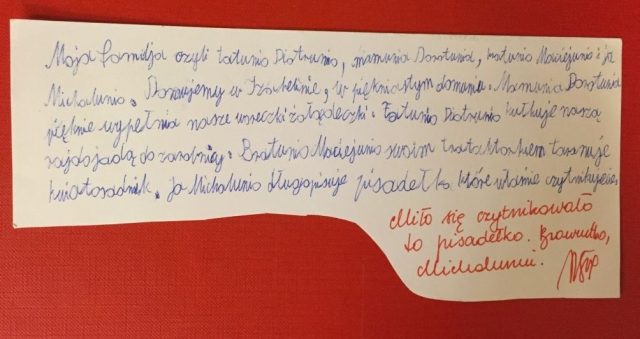 Moja familja czyli tatunio Piotrunio, mamunia Dorotunia, bratunio Maciejunio i ja
Michalunio. Domujemy w Izabelinie, w piękniastym domuniu. Mamunia Dorotunia
pięknie wypełnia nasze woreczki żołądeczki. Tatunio Piotrunio kulkuje naszą
zajdojadą do zarodnicy. Bratunio Maciejunio swoim tratraktorkiem taranuje
kwiatosadnik. Ja Michalunio długopisuje pisadełko, które właśnie czytnikujecie.
Miło się czytnikowało
to pisadełko. Brawutko,
Michaluniu.